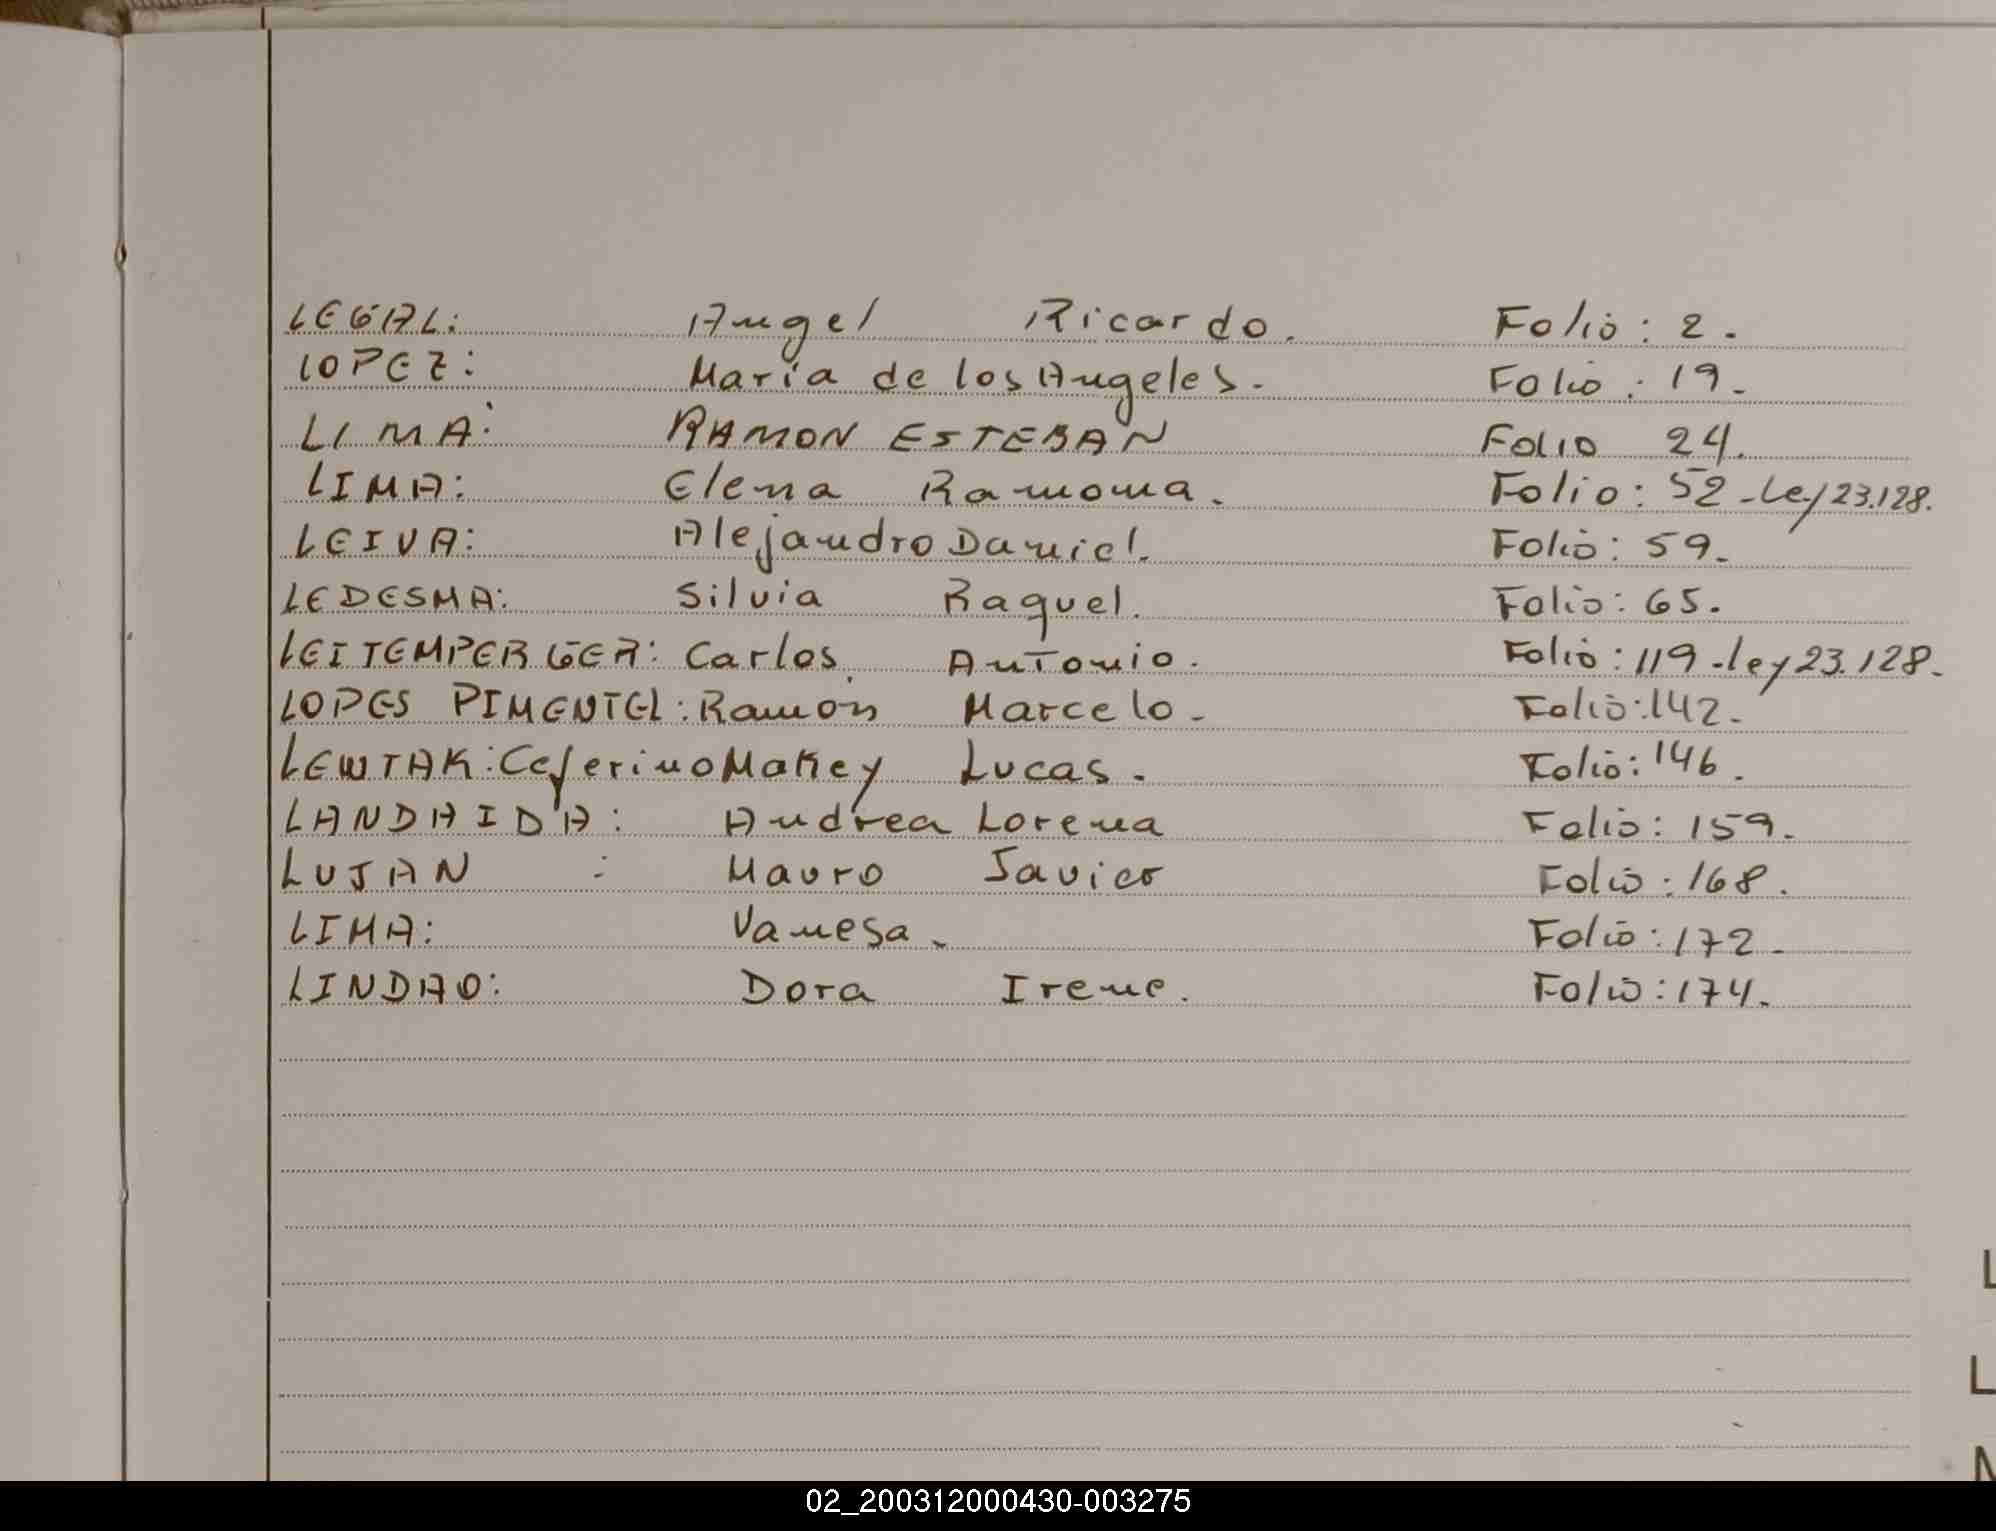 LEGAL: Angel Ricardo. Folio: 2.
LOPEZ: María de los Angeles. Folio: 19.
LIMA: RAMON ESTEBAN FOLIO 24.
LIMA: Elena Ramona. Folio: 52 - Ley 23.128.
LEIVA: Alejandro Daniel. Folio: 59.
LEDESMA: Silvia Raquel. Folio: 65.
LEITEMPERGER: Carlos Antonio. Folio: 119 - ley 23.128.
LOPES PIMENTEL: Ramón Marcelo. Folio: 142.
LEWTAK: Ceferino Makey Lucas. Folio: 146.
LANDAIDA: Andrea Lorena Folio: 159.
LUJAN : Mauro Javier Folio: 168.
LIMA: Vanesa. Folio: 172.
LINDAO: Dora Irene. Folio: 174.
L
L
M
02_200312000430-003275